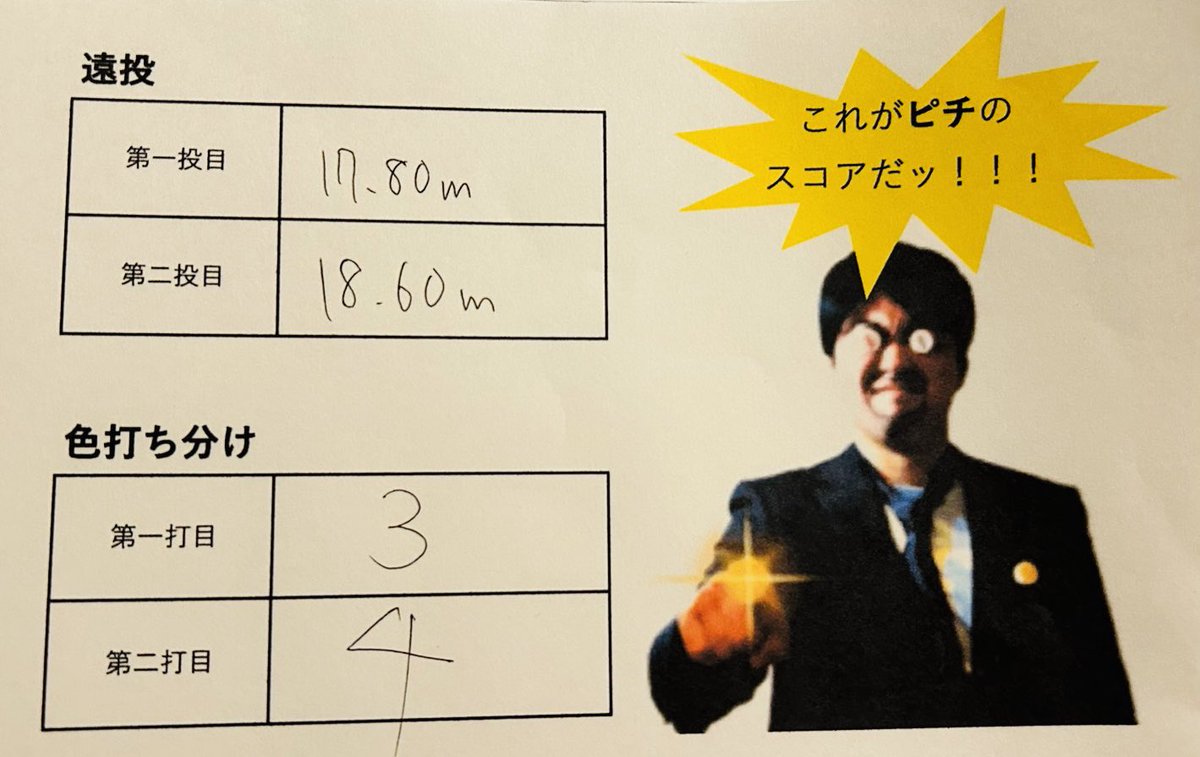 遠投
第一投目 17.80m
第二投目 18.60m
色打ち分け
第一打目 3
第二打目 4
これがピチの
スコアだッ！！！